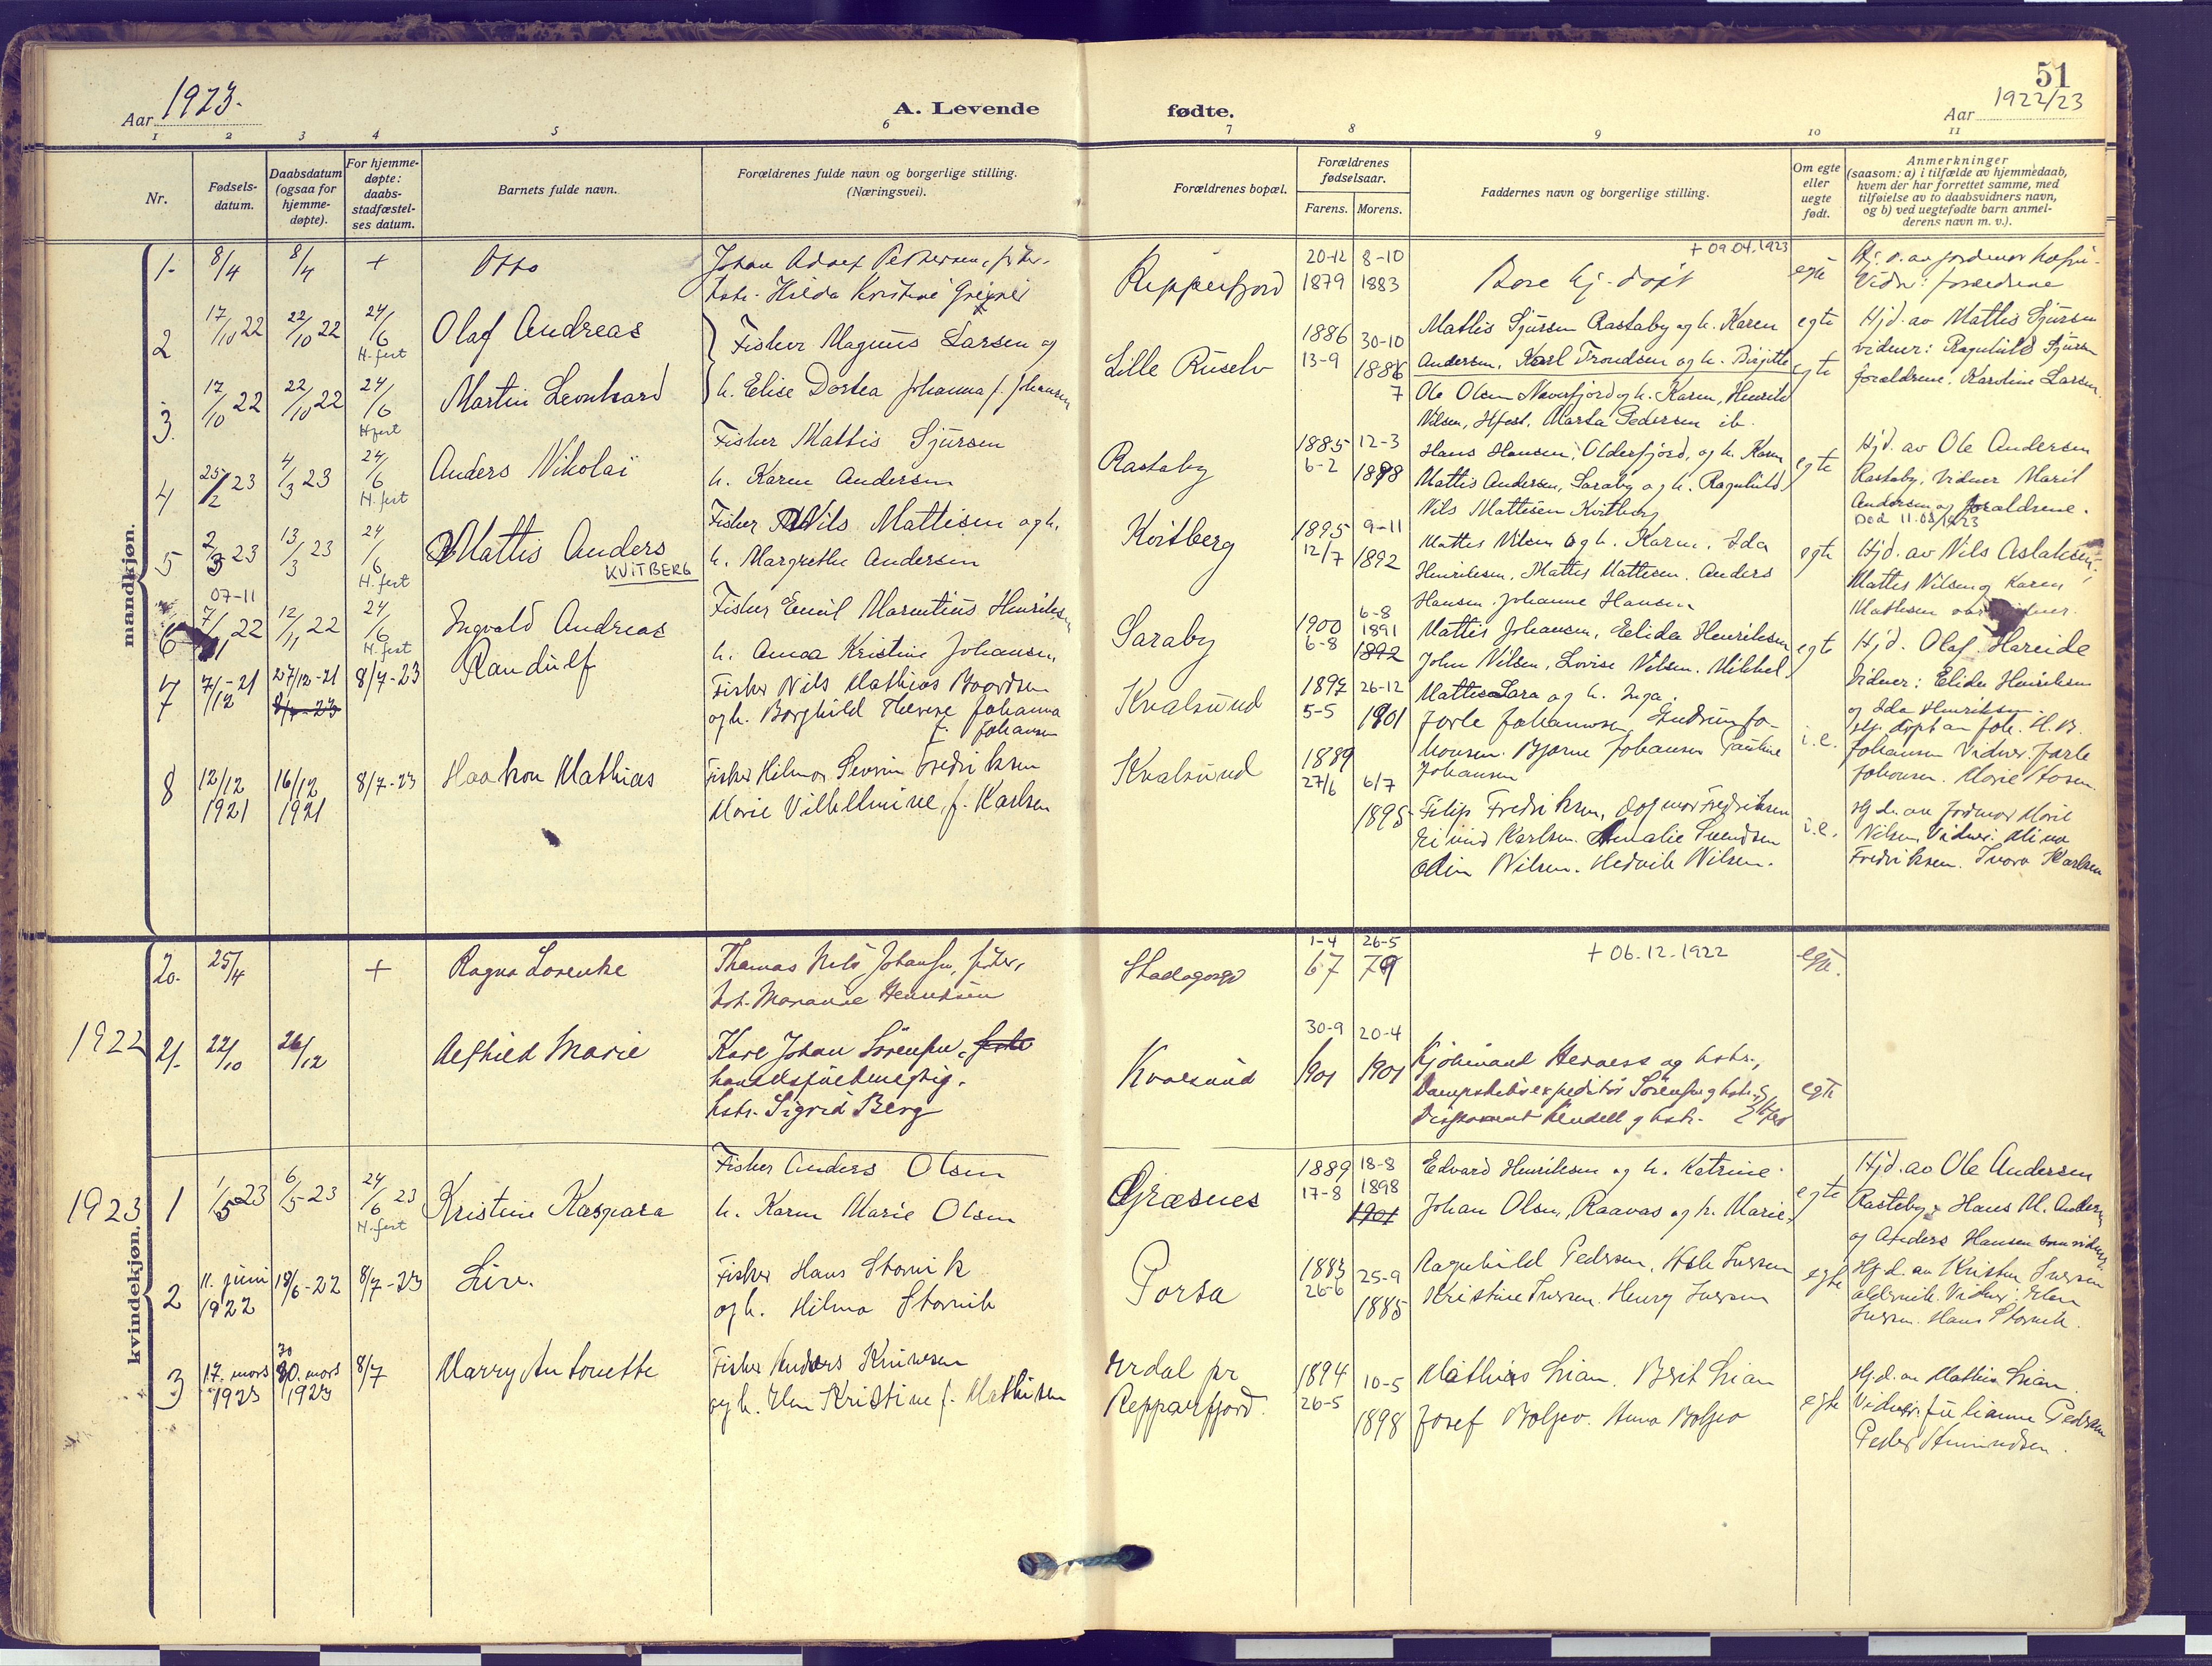 Aar 1923.
A. Levende fødte.
51
Aar 1922/23
1 2 3 4 5 6 7 8 9 10 11
Nr.
Fødsels-
datum.
Daabsdatum
(ogsaa for
hjemme-
døpte).
For hjemme-
døpte:
daabs-
stadfæstel-
ses datum.
Barnets fulde navn.
Forældrenes fulde navn og borgerlige stilling.
(Næringsvei).
Forældrenes bopæl.
Forældrenes
fødselsaar.
Farens. Morens.
Faddernes navn og borgerlige stilling.
Om egte
eller
uegte
født.
Anmerkninger
(saasom: a) i tilfælde av hjemmedaab,
hvem der har forrettet samme, med
tilføielse av to daabsvidners navn,
og b) ved uegtefødte barn anmel-
derens navn m. v.).
mandkjøn.
1. 8/4 8/4 + Otto
Johan Adolf Pettersen, fisker.
hstr. Hilda Kristine
Repperfjord
20-12 8-10
1879 1883
+ 09.04.1923
Bare hj. døpt
egte
Vidner: forældrene
2 17/10 22 22/10 22 24/6
H.fest
Olaf Andreas
Fisker Magnus Larsen og
h. Elise Dortea Johanna f. Johansen
Lille Ruselv
1886 30-10
13-9 1886
7
Mattis Sjursen Rastaby og h. Karen
Andersen, Karl Trondsen og h. Birgitte
egte
Hjd. av Mattis Sjursen
vidner: Ragnhild Sjursen
forældrene. Karoline Larsen
3. 17/10 22 22/10 22 24/6
H.fest
Martin Leonhard
Ole Olsen Neverfjord og h. Karen, Henrik
Nilsen, Hfest, Marta Pedersen ib.
egte
4 25/2 23 4/3 23 24/6
H.fest
Anders Nikolai
Fisker Mattis Sjursen
h. Karen Andersen
Rastaby
1885 12-3
6-2 1898
Hans Hansen, Olderfjord, og h. Karen
Mattis Andersen, Saraby og h. Ragnhild
Nils Mattisen Kvitberg
egte
Hjd. av Ole Andersen
Rastaby, Vidner Marit
Andersen og forældrene.
5 2/3 23 13/3 23 24/6
H.fest
Mattis Anders
KVITBERG
Fisker Nils Mattisen og h.
h. Margrethe Andersen
Kvitberg
1895 9-11
12/7 1892
Mattis Nilsen og h. Karen. Ida
Henriksen, Mattis Mattisen. Anders
Hansen. Johanne Hansen
egte
Død 11.08.1923
Hjd. av Nils Aslaksen,
Mattis Nilsen og Karen
Mathisen
6 07-11
7/11 22 12/11 22 24/6
H.fest
Ingvald Andreas
Fisker Emil Marentius Henriksen
h. Anna Kristine Johansen,
Saraby
1900 6-8
6-8 1891
1892
Mattis Johansen, Elida Henriksen
John Nilsen, Lovise Nilsen. Mikkel
Mattis Sara og h. Inga.
egte
Hjd. Olaf Hareide
Vidner: Elida Henriksen
og Ida Henriksen.
7 7/12-21 27/12-21
8/7-23
8/7-23
Randulf
Fisker Nils Mathias Baardsen
og h. Borghild Therese Johanna
f. Johansen
Kvalsund
1897 26-12
5-5 1901
Jarle Johannsen, Gudrun Jo-
hansen. Bjarne Johansen Pauline
Johansen
i.e.
Hj. døpt av Joh. H. B.
Johansen Vidner Jarle
Johansen. Marie Hosen.
8 12/12 1921 16/12 1921 8/7-23
Haakon Mathias
Fisker Hilmar Severin Fredriksen
Marie Vilhelmine, f. Karlsen
Kvalsund
1889
27/6 6/7
1895
Filip Fredriksen, Dagmar Fredriksen
Eivind Karlsen. Amalie Svendsen
Odin Nilsen. Hedvik Nilsen.
i.e.
Hj.d. av Jordmor Marie
Nilsen, Vidner: Mina
Fredriksen. Ivara Karlsen
20. 25/4 +
Ragna Lorentse
Thomas Nils Johansen, fisker,
hst. Marianne Henriksen
1-4 26-5
67 79
+ 06.12.1922
egte.
1922
21. 22/10 26/12
Alfhild Marie
Karl Johan Sörensen,
handelsfuldmegtig.
hstr. Sigrid Berg
Kvalsund
30-9 20-4
1901 1901
Kjöbmand Hervess og hstr.,
Dampskibsexpeditör Sörensen og hstr.
Disponent Kendell og hstr.
egte
kvindekjøn.
1923
1 1/5 23 6/5-23 24/6 23
H.fest
Kristine Kaspara
Fisker Anders Olsen
h. Karen Marie Olsen
Græsnes
1889 18-8
17-8 1898
1901
Edvard Henriksen og h. Katrine.
Johan Olsen, Raavas og h. Marie.
egte
Hjd. av Ole Andersen
Rastaby, Hans M. Andersen
og Anders Hansen som vidner
2 11. juni 1922 18/6-22 8/7-23
Liv.
Fisker Hans Storvik
og h. Hilma Storvik
Porsa
1883 25-9
26-6 1885
Ragnhild Pedersen, Iversen
Kristine Iversen. Henry Iversen
egte
Hj.d. av Kristen Iversen
Vidner: Elen
Iversen. Hans Storvik.
3 17. mars 1923 30. mars 1923 8/7
Marry Antonette
Fisker Anders Knutsen
og h. Elen Kristine f. Mathisen
Erdal pr
Repparfjord.
1894 10-5
26-5 1898
Mathias Lian. Berit Lian
Josef Boljeo. Anna Boljeo
egte
Hj.d. av Mathis Lian.
Vidner: Julianne Pedersen
Peder Amundsen.